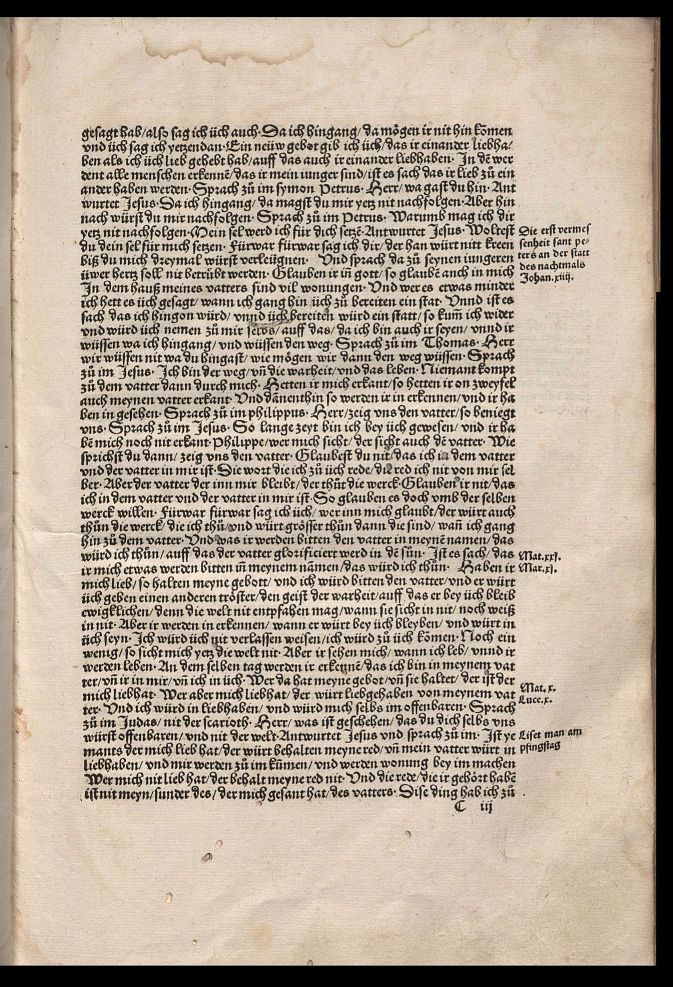 gesagt hab/also sag ich üch auch· Da ich hingang/ da mögen ir nit hin kōmen
vnd üch sag ich yetzendan· Ein neüw gebot gib ich üch/das ir einander liebha/
ben als ich üch lieb gehebt hab/auff das auch ir einander liebhaben· In dē wer
dent alle menschen erkennē/das ir mein iunger sind/ist es sach das ir lieb zů ein
ander haben werden· Sprach zů im symon Petrus· Herr/wa gast du hin· Ant
wurtet Jesus· Da ich hingang/ da magst du mir yetz nit nachfolgen· Aber hin
nach würst du mir nachfolgen· Sprach zů im Petrus· Warumb mag ich dir
yetz nit nachfolgen· Mein sel werd ich für dich setzē· Antwurtet Jesus· Woltest
du dein sel für mich setzen· Fürwar fürwar sag ich dir/ der han würt nitt kreen
biß du mich dreymal würst verleügnen· Vnd sprach da zů seynen iungeren
üwer hertz soll nit betrübt werden· Glauben ir in̄ gott/so glaubē auch in mich
In dem hauß meines vatters sind vil wonungen· Vnd wer es etwas minder
ich hett es üch gesagt/ wann ich gang hin üch zů bereiten ein stat· Vnnd ist es
sach das ich hingon würd/ vnnd üch bereiten würd ein statt/so kum̄ ich wider
vnd würd üch nemen zů mir selbs/auff das/da ich bin auch ir seyen/vnnd ir
wüssen wa ich hingang/ vnd wüssen den weg· Sprach zů im Thomas· Herr
wir wüssen nit wa du hingast/wie mögen wir dann den weg wüssen· Sprach
zů im Jesus· Ich bin der weg/vn̄ die warheit/vnd das leben· Niemant kompt
zů dem vatter dann durch mich· Hetten ir mich erkant/so hetten ir on zweyfel
auch meynen vatter erkant· Vnd dānenthin so werden ir in erkennen/vnd ir ha
ben in gesehen· Sprach zů im philippus· Herr/zeig vns den vatter/so beniegt
vns· Sprach zů im Jesus· So lange zeyt bin ich bey üch gewesen/ vnd ir ha
bē mich noch nit erkant· Philippe/wer mich sicht/der sicht auch dē vatter· Wie
sprichst du dann/zeig vns den vatter· Glaubest du nit/das ich in dem vatter
vnd der vatter in mir ist· Die wort die ich zů üch rede/die red ich nit von mir sel
ber· Aber der vatter der inn mir bleibt/der thůt die werck· Glauben ir nit/das
ich in dem vatter vnd der vatter in mir ist· So glauben es doch vmb der selben
werck willen· Fürwar fürwar sag ich üch/ wer inn mich glaubt/der würt auch
thůn die werck/die ich thů/vnd würt grösser thůn dann die sind/ wan̄ ich gang
hin zů dem vatter· Vnd was ir werden bitten den vatter in meynē namen/das
würd ich thůn/ auff das der vatter glorificiert werd in dē sůn· Ist es sach/das
ir mich etwas werden bitten in̄ meynem namen/das würd ich thůn· Haben ir
mich lieb/so halten meyne gebott/ vnd ich würd bitten den vatter/vnd er würt
üch geben einen anderen tröster/den geist der warheit/auff das er bey üch bleib
ewigklichen/denn die welt nit entpfahen mag/wann sie sicht in nit/noch weiß
in nit· Aber ir werden in erkennen/ wann er würt bey üch bleyben/ vnd würt in
üch seyn· Ich würd üch nit verlassen weisen/ich würd zů üch kōmen· Noch ein
wenig/so sicht mich yetz die welt nit· Aber ir sehen mich/ wann ich leb/ vnnd ir
werden leben· An dem selben tag werden ir erkennē/das ich bin in meynem vat
ter/vn̄ ir in mir/vn̄ ich in üch· Wer da hat meyne gebot/vn̄ sie haltet/der ist der
mich liebhat· Wer aber mich liebhat/der würt liebgehaben von meynem vat
ter· Vnd ich würd in liebhaben/ vnd würd mich selbs im offenbaren· Sprach
zů im Judas/nit der scarioth· Herr/ was ist geschehen/das du dich selbs vns
würst offenbaren/vnd nit der welt· Antwurtet Jesus vnd sprach zů im· Ist ye
mants der mich lieb hat/der würt behalten meyne red/vn̄ mein vatter würt in
liebhaben/ vnd mir werden zů im kūmen/ vnd werden wonung bey im machen
Wer mich nit lieb hat/der behalt meyne red nit· Vnd die rede/die ir gehört habē
ist nit meyn/sunder des/der mich gesant hat/des vatters· Dise ding hab ich zů
C iij
Die erst vermes
senheit sant pe-
ters an der statt
des nachtmals
Johan.xiiij.
Mat.xxj.
Mar.xj.
Mat.x.
Luce.x.
Liset man am
pfingstag